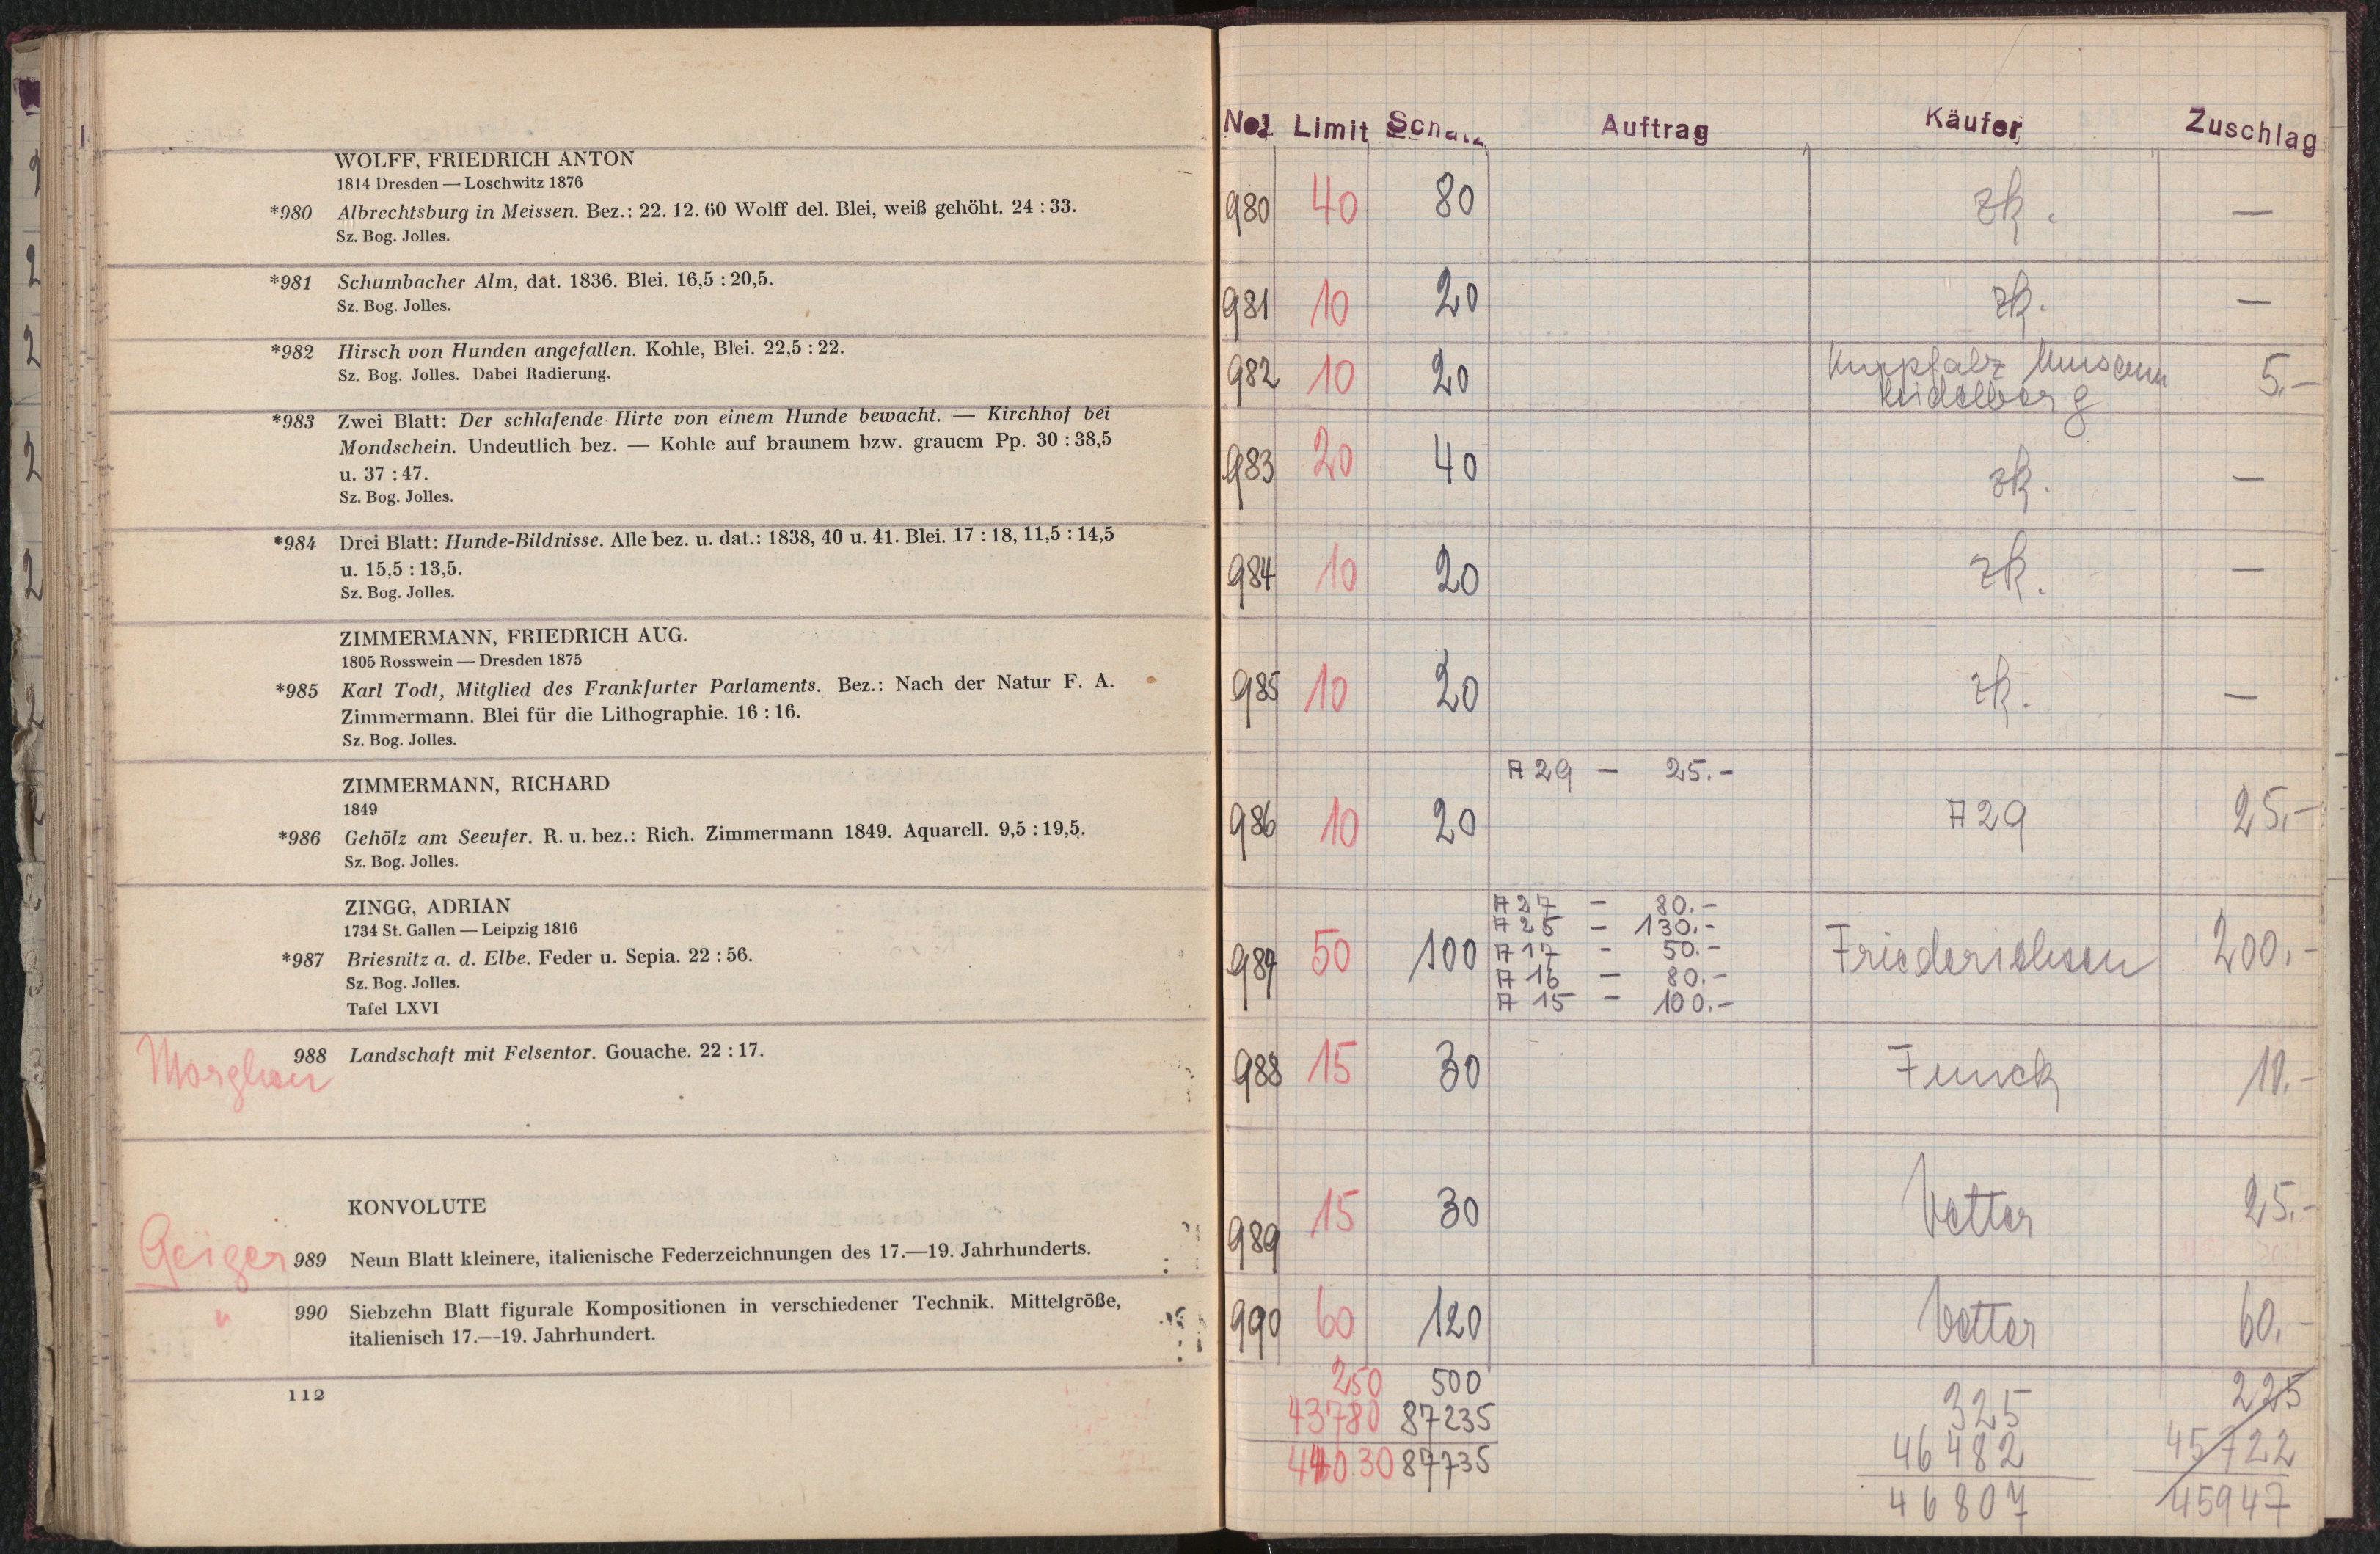 WOLFF, FRIEDRICH ANTON
1814 Dresden — Loschwitz 1876
*980 Albrechtsburg in Meissen. Bez.: 22. 12. 60 Wolff del. Blei, weiß gehöht. 24 : 33.
Sz. Bog. Jolles.
*981 Schumbacher Alm, dat. 1836. Blei. 16,5 : 20,5.
Sz. Bog. Jolles.
*982 Hirsch von Hunden angefallen. Kohle, Blei. 22,5 : 22.
Sz. Bog. Jolles. Dabei Radierung.
*983 Zwei Blatt: Der schlafende Hirte von einem Hunde bewacht. — Kirchhof bei
Mondschein. Undeutlich bez. — Kohle auf braunem bzw. grauem Pp. 30 : 38,5
u. 37 : 47.
Sz. Bog. Jolles.
*984 Drei Blatt: Hunde-Bildnisse. Alle bez. u. dat.: 1838, 40 u. 41. Blei. 17 : 18, 11,5 : 14,5
u. 15,5 : 13,5.
Sz. Bog. Jolles.
ZIMMERMANN, FRIEDRICH AUG.
1805 Rosswein — Dresden 1875
*985 Karl Todt, Mitglied des Frankfurter Parlaments. Bez.: Nach der Natur F. A.
Zimmermann. Blei für die Lithographie. 16 : 16.
Sz. Bog. Jolles.
ZIMMERMANN, RICHARD
1849
*986 Gehölz am Seeufer. R. u. bez.: Rich. Zimmermann 1849. Aquarell. 9,5 : 19,5.
Sz. Bog. Jolles.
ZINGG, ADRIAN
1734 St. Gallen — Leipzig 1816
*987 Briesnitz a. d. Elbe. Feder u. Sepia. 22 : 56.
Sz. Bog. Jolles.
Tafel LXVI
988 Landschaft mit Felsentor. Gouache. 22 : 17.
Morghen
KONVOLUTE
Geiger 989 Neun Blatt kleinere, italienische Federzeichnungen des 17.—19. Jahrhunderts.
" 990 Siebzehn Blatt figurale Kompositionen in verschiedener Technik. Mittelgröße,
italienisch 17.—19. Jahrhundert.
112
No. Limit Schätz Auftrag Käufer Zuschlag
980 40 80 zk. —
981 10 20 zk. —
982 10 20 Kurpfalz Museum 5.-
Heidelberg
983 20 40 zk. —
984 10 20 zk. —
985 10 20 zk. —
A 29 — 25.-
986 10 20 A 29 25.-
A 27 — 80.-
A 25 — 130.-
987 50 100 A 17 - 50.- Friederichsen 200.-
A 16 — 80.-
A 15 — 100.-
988 15 30 Funck 10.-
989 15 30 Vetter 25.-
990 60 120 Vetter 60.-
250 500 325 225
43780 87235 46482 45722
44030 87735 46807 45947